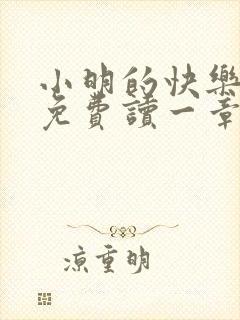 小明的快樂
免費讀一章
涼重明